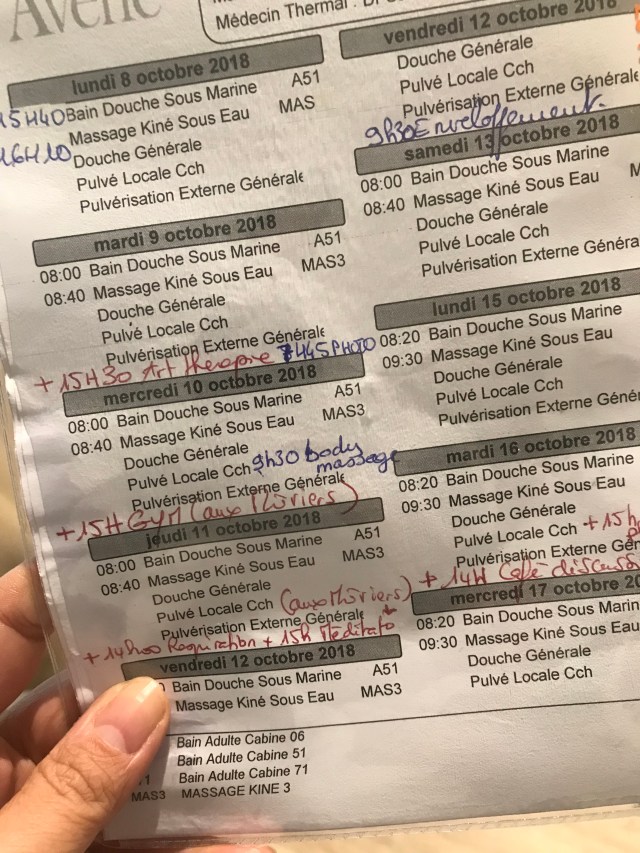 Avène
Médecin Thermal :
lundi 8 octobre 2018
15H40 Bain Douche Sous Marine A51
Massage Kiné Sous Eau MAS
16H10 Douche Générale
Pulvé Locale Cch
Pulvérisation Externe Générale
mardi 9 octobre 2018
08:00 Bain Douche Sous Marine A51
08:40 Massage Kiné Sous Eau MAS3
Douche Générale
Pulvé Locale Cch
Pulvérisation Externe Générale
+ 15H30 Art thérapie 7H45 PHOTO
mercredi 10 octobre 2018
08:00 Bain Douche Sous Marine A51
08:40 Massage Kiné Sous Eau MAS3
Douche Générale
Pulvé Locale Cch 9h30 body massage
Pulvérisation Externe Générale
+ 15H GYM (aux Mûriers)
jeudi 11 octobre 2018
08:00 Bain Douche Sous Marine A51
08:40 Massage Kiné Sous Eau MAS3
Douche Générale
Pulvé Locale Cch (aux Mûriers)
Pulvérisation Externe Générale
+ 14h00 Respiration + 15h Méditato
vendredi 12 octobre 2018
Bain Douche Sous Marine A51
Massage Kiné Sous Eau MAS3
Bain Adulte Cabine 06
Bain Adulte Cabine 51
Bain Adulte Cabine 71
MAS3 MASSAGE KINE 3
vendredi 12 octobre 2018
Douche Générale
Pulvé Locale Cch
Pulvérisation Externe Générale
9h30 Enveloppement
samedi 13 octobre 2018
08:00 Bain Douche Sous Marine
08:40 Massage Kiné Sous Eau
Douche Générale
Pulvé Locale Cch
Pulvérisation Externe Généra
lundi 15 octobre 2018
08:20 Bain Douche Sous Marine
09:30 Massage Kiné Sous Eau
Douche Générale
Pulvé Locale Cch
Pulvérisation Externe Génér
mardi 16 octobre 2018
08:20 Bain Douche Sous Marine
09:30 Massage Kiné Sous Eau
Douche Générale
Pulvé Locale Cch + 15h
Pulvérisation Externe Gér
+ 14H Café discuss
mercredi 17 octobre 20
08:20 Bain Douche Sous Marin
09:30 Massage Kiné Sous Eau
Douche Générale
Pulvé Locale Cch